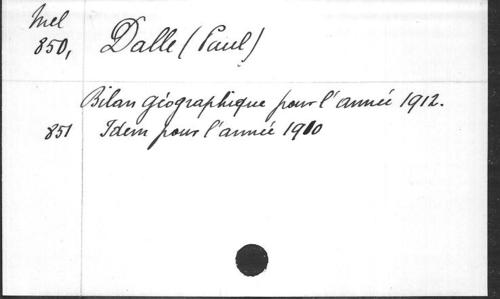 Mel
850, Dalle (Paul)
Bilan géographique pour l'année 1912.
851 Idem pour l'année 1910